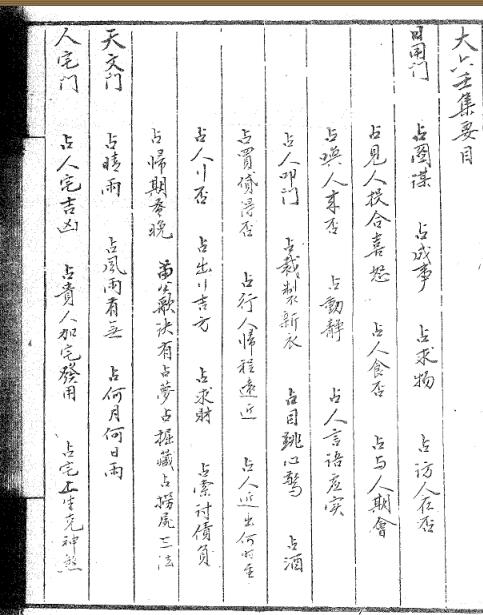 大六壬集要目
日用门 占图谋 占成事 占求物 占访人在否
占見人投合喜怒 占人食否 占与人期會
占喚人来否 占動靜 占人言語虚实
占人叩门 占裁製新衣 占目跳心驚 占酒
占買貸得否 占行人歸程遠近 占人近出何时至
占人川否 占出川吉方 占求財 占索討債負
占歸期蚤晚 苗公歌诀有占夢占掘藏占捞屍三法
天文门 占晴雨 占風雨有無 占何月何日雨
人宅门 占人宅吉凶 占貴人加宅發用 占宅上生克神煞